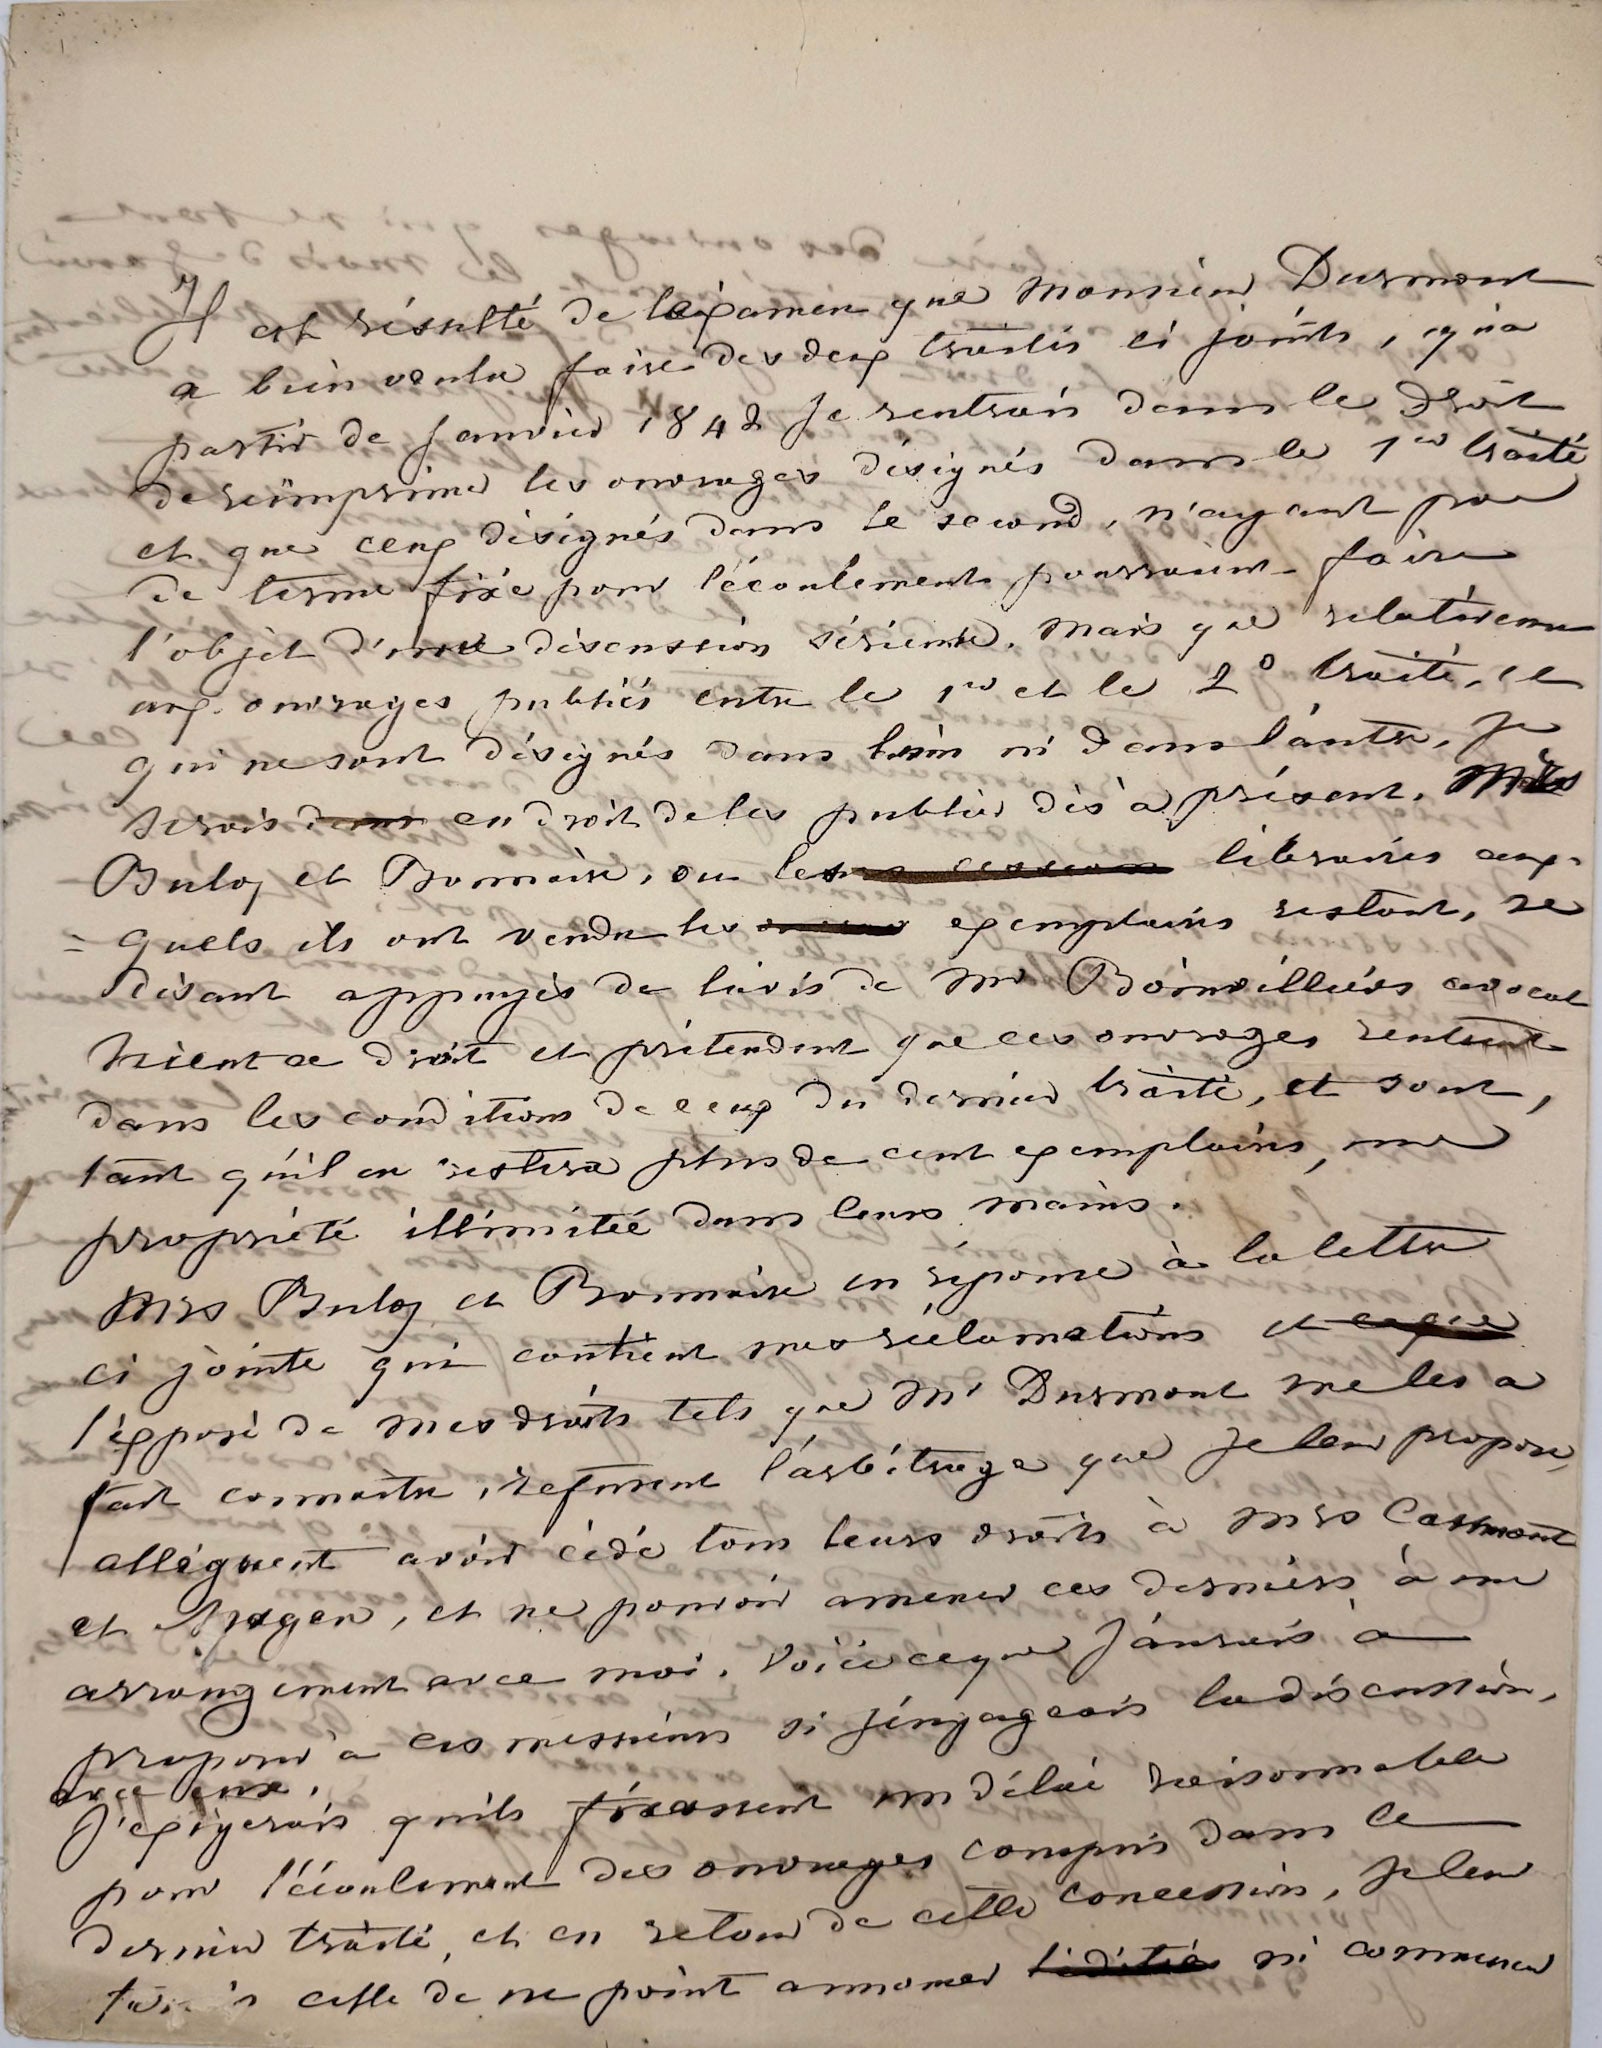 Il est résulté de l'examen que Monsieur Durmont
a bien voulu faire des deux traités ci joints, qu'à
partir de Janvier 1842 Je rentrais dans le droit
de réimprimer les ouvrages désignés dans le 1er traité
et que ceux désignés dans le second, n'ayant pas
de terme fixé pour l'écoulement pourraient faire
l'objet d'une discussion sérieuse. Mais que relativement
aux ouvrages publiés entre le 1er et le 2d traité, et
qui ne sont désignés dans l'un ni dans l'autre, je
serais en droit de les publier dès à présent. Mrs
Buloz et Bonnaire, ou les libraires aux=
=quels ils ont vendu les exemplaires restant, se
disant appuyés de l'avis de Mr Boinvilliers avocat
nient ce droit et prétendent que ces ouvrages rentrent
dans les conditions de ceux du dernier traité, et sont,
tant qu'il en restera plus de cent exemplaires, une
propriété illimitée dans leurs mains.
Mrs Buloz et Bonnaire en réponse à la lettre
ci jointe qui contient mes réclamations et
l'exposé de mes droits tels que Mr Durmont me les a
fait connaitre, refusent l'arbitrage que je leur propose,
allèguent avoir cédé tous leurs droits à Mrs
et Magen, et ne pouvoir amener ces derniers à un
arrangement avec moi. Voici ce que j'aurais à
proposer à ces messieurs si j'engageais la discussion,
avec eux.
J'exigerais qu'ils fixassent un délai raisonnable
pour l'écoulement des ouvrages compris dans le
dernier traité, et en retour de cette concession, je leur
ferais celle de ne point annoncer ni commencer